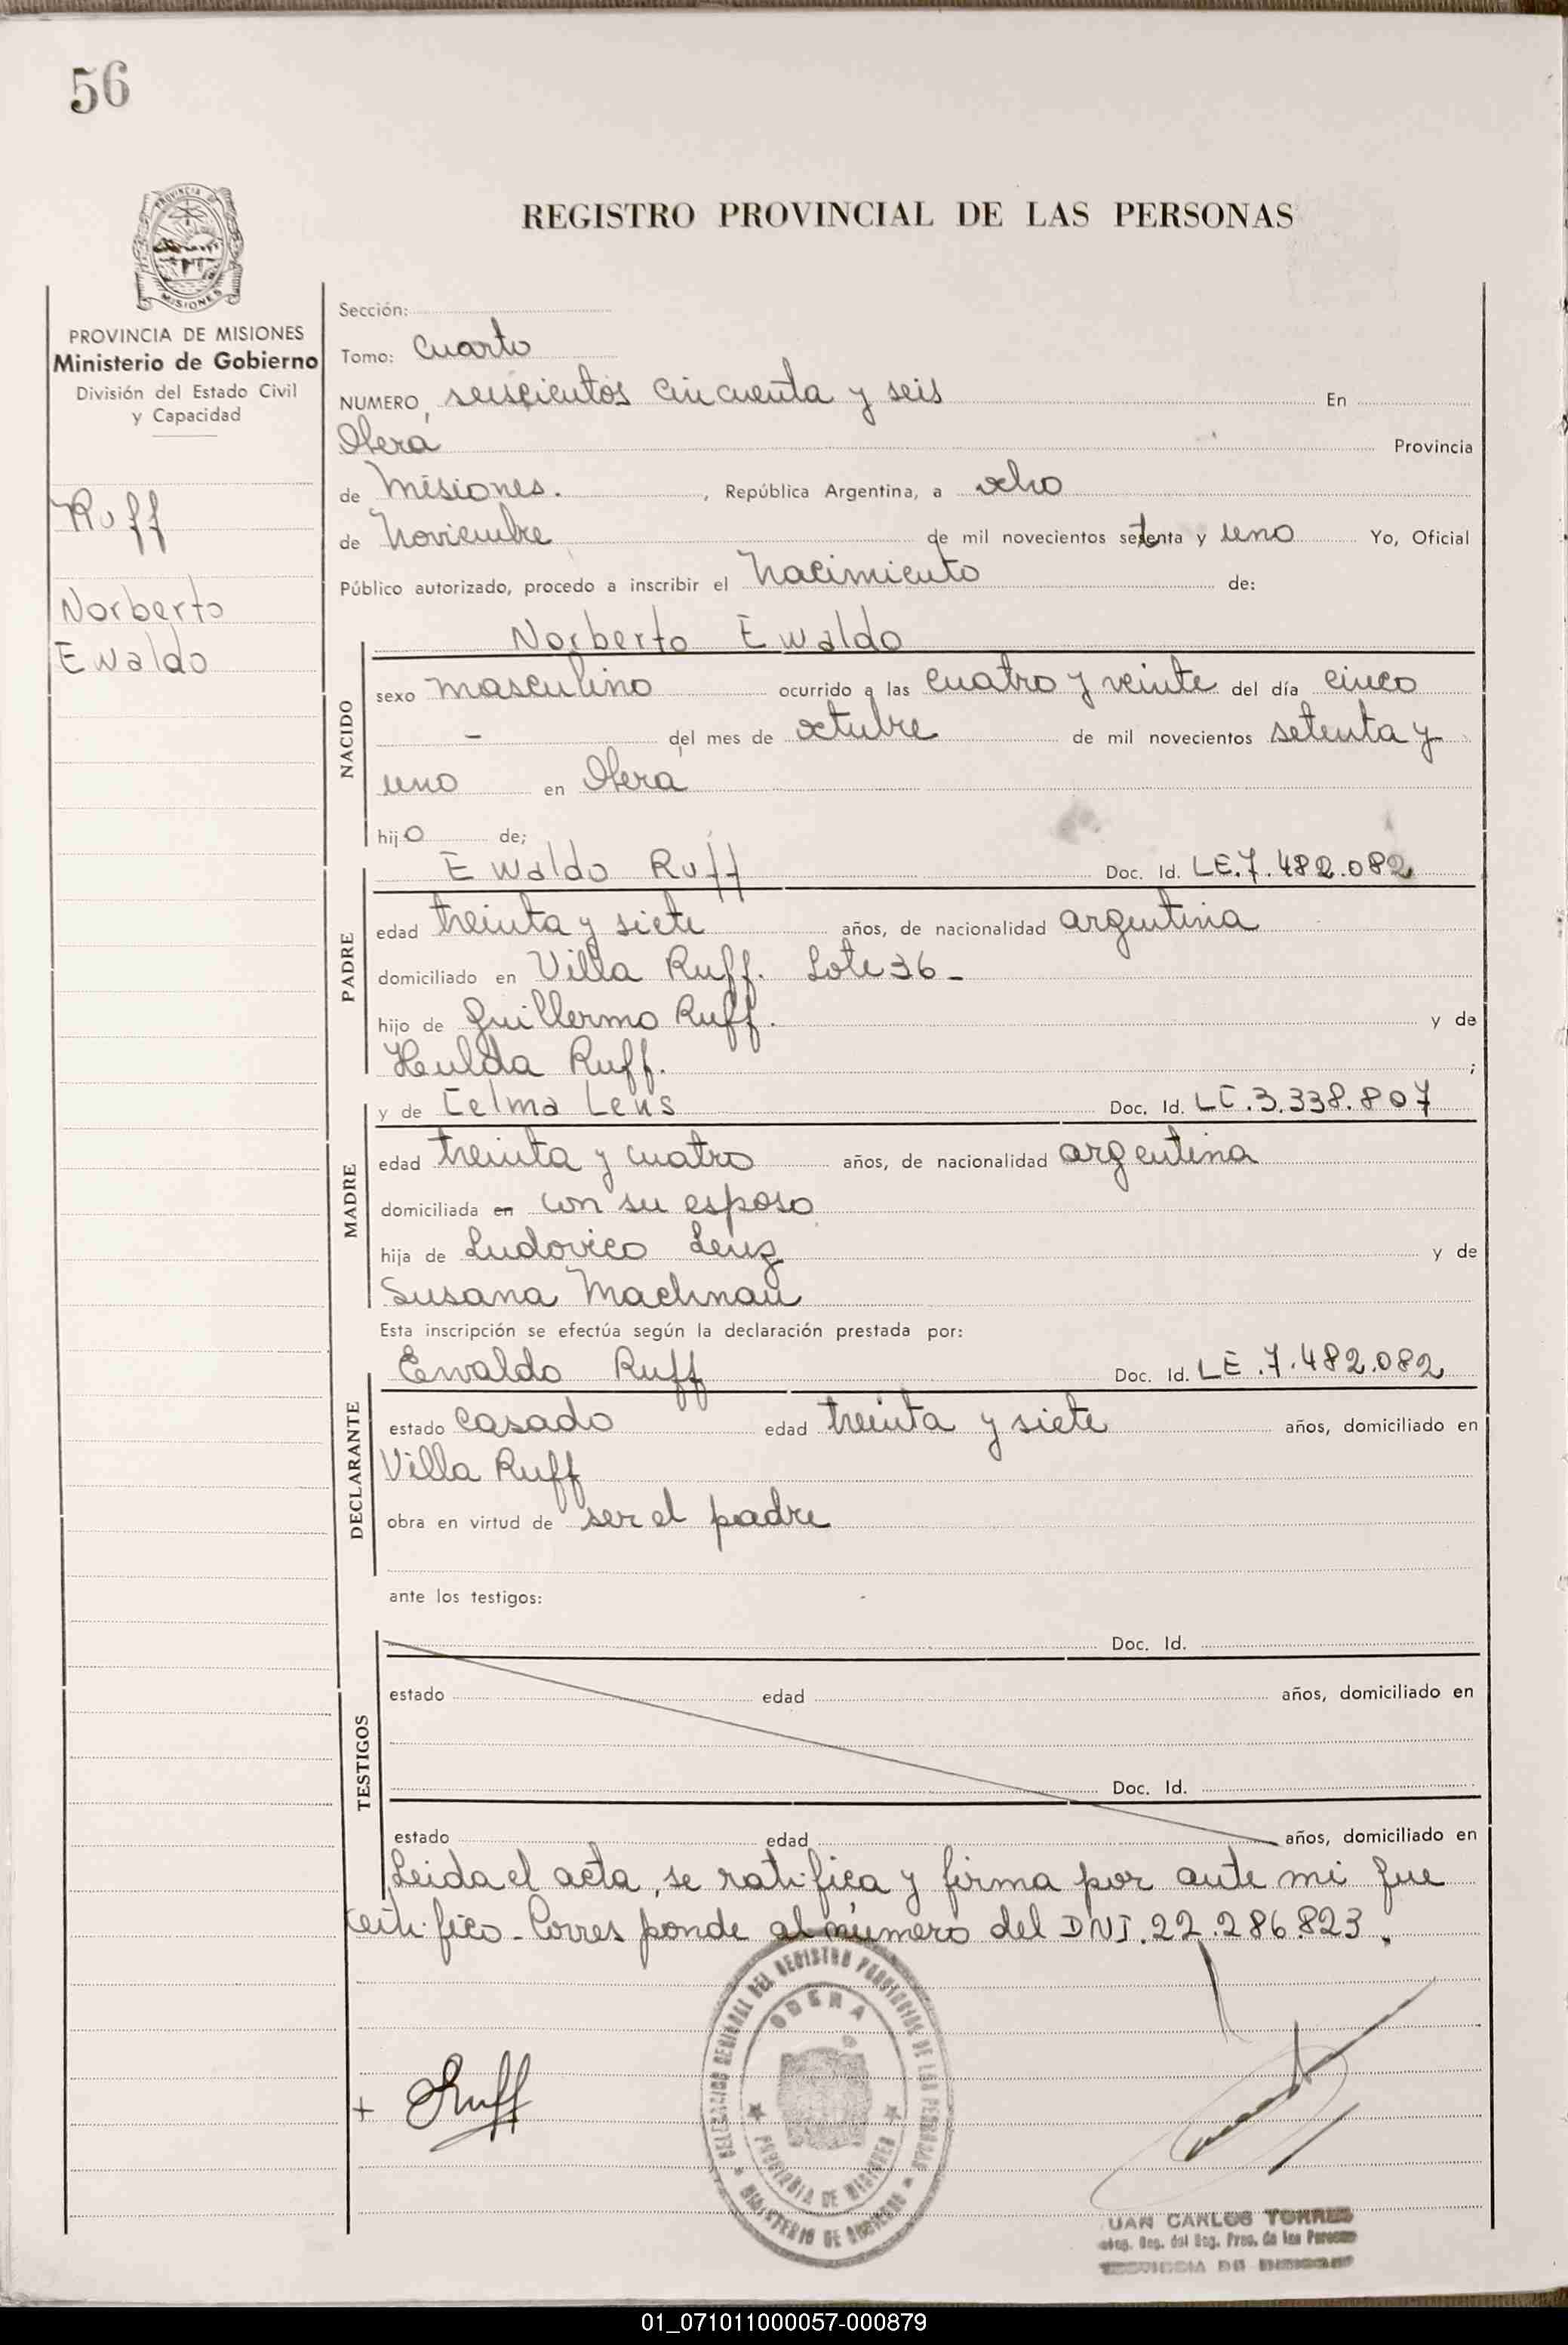 56
REGISTRO PROVINCIAL DE LAS PERSONAS
PROVINCIA DE MISIONES
MISIONES
PROVINCIA DE MISIONES
Ministerio de Gobierno
División del Estado Civil
y Capacidad
Ruff
Norberto
Ewaldo
Sección:
Tomo: Cuarto
NUMERO, seiscientos cincuenta y seis En
Oberá Provincia
de Misiones. , República Argentina, a ocho
de Noviembre de mil novecientos setenta y uno Yo, Oficial
Público autorizado, procedo a inscribir el Nacimiento de:
Norberto Ewaldo
NACIDO
sexo masculino ocurrido a las cuatro y veinte del día cinco
- del mes de octubre de mil novecientos setenta y
uno en Obera
hijo de;
PADRE
Ewaldo Ruff Doc. Id. LE.7.482.082
edad treinta y siete años, de nacionalidad argentina
domiciliado en Villa Ruff. Lote 36-
hijo de Guillermo Ruff. y de
Hulda Ruff. ;
MADRE
y de Telma Lens Doc. Id. LC.3.338.807
edad treinta y cuatro años, de nacionalidad argentina
domiciliada en con su esposo
hija de Ludovico Lenz y de
Susana Machnau
Esta inscripción se efectúa según la declaración prestada por:
DECLARANTE
Ewaldo Ruff Doc. Id. LE.7.482.082
estado casado edad treinta y siete años, domiciliado en
Villa Ruff
obra en virtud de ser el padre
ante los testigos:
TESTIGOS
Doc. Id.
estado edad años, domiciliado en
Doc. Id.
estado edad años, domiciliado en
Leida el acta, se ratifica y firma por ante mi que
certifico - Corresponde al número del DNI.22.286.823.
+ Ruff
DELEGACION REGIONAL DEL REGISTRO PROVINCIAL DE LAS PERSONAS
OBERA
PROVINCIA DE MISIONES
MINISTERIO DE GOBIERNO
UAN CARLOS TORRES
Reg. del Reg. Prov. de las Personas
PROVINCIA DE MISIONES
01_071011000057-000879